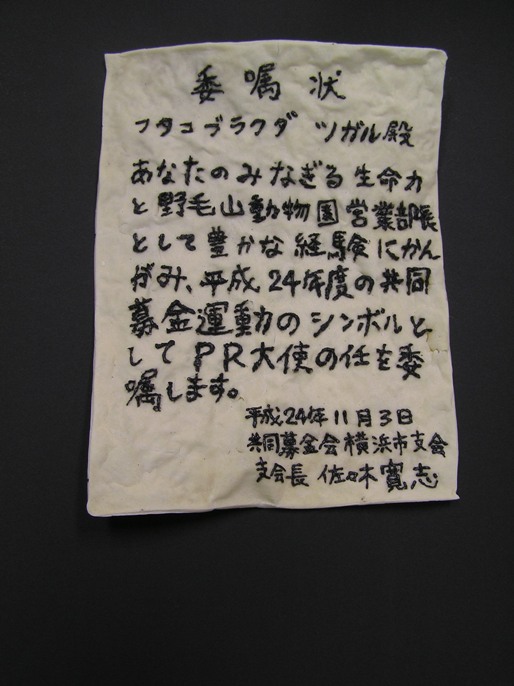 委嘱状
フタコブラクダ ツガル殿
あなたのみなぎる生命力
と野毛山動物園営業部長
として豊かな経験にかん
がみ、平成24年度の共同
募金運動のシンボルと
してPR大使の任を委
嘱します。
平成24年11月3日
共同募金会横浜市支会
支会長 佐々木寛志